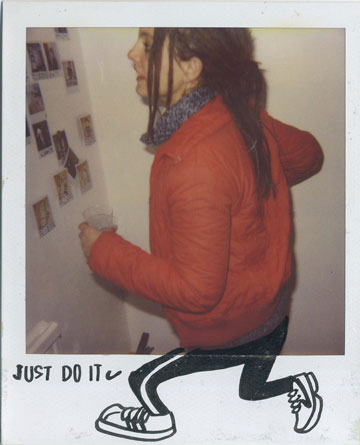 JUST DO IT